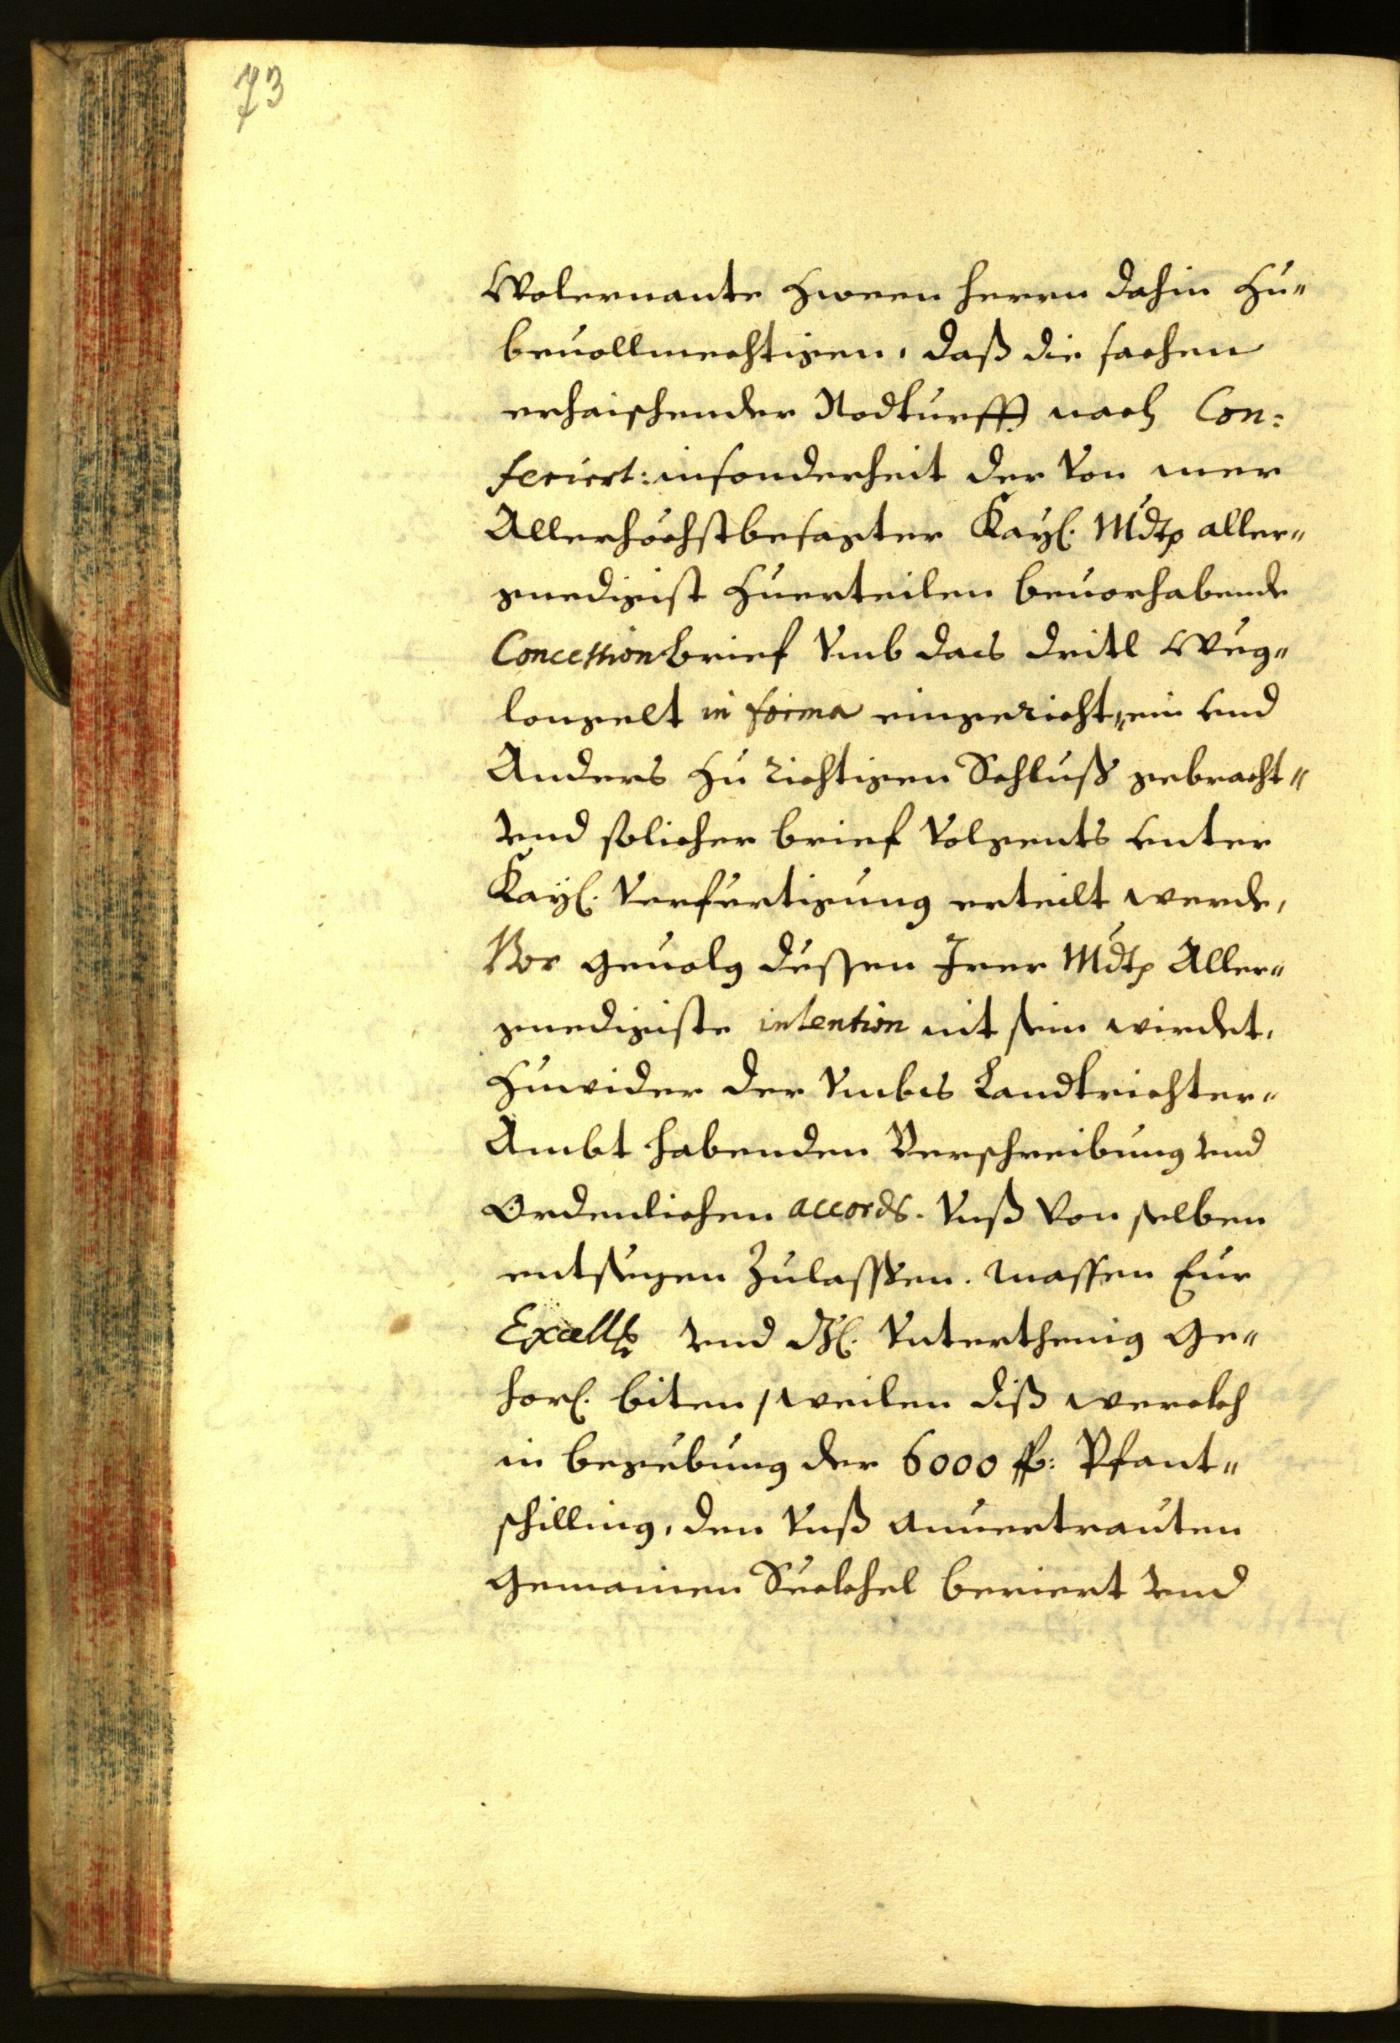 73
Wolernante zween herrn dahin zu=
beuollmechtigen, daß die sachen
erhaischender Nodturfft nach Con:
feriert: insonderheit der von mer
Allerhöchstbesagter Kayl. Mdt aller=
gnedigist zuerteilen beuorhabende
Concession brief vmb das dritl Weg=
longelt in forma eingericht, ein vnd
Anders zu richtigen Schluß gebracht=
vnd solicher brief volgents vnter
Kayl. verfertigung erteilt werde,
Vor geuolg dessen Irer Mdt Aller=
gnedigiste intention nit sein wirdet,
zuwider der vmbs Landtrichter=
Ambt habenden Verschreibung vnd
Ordenlichen accords. vnß von selben
entsezen zulassen. massen Eur
Excell. vnd Hl. vnterthenig ge=
horl. biten, weilen diß werckh
in begebung der 6000 f: Pfant=
schilling, den vnß anuertrauten
gemainen Seckhel beriert vnd